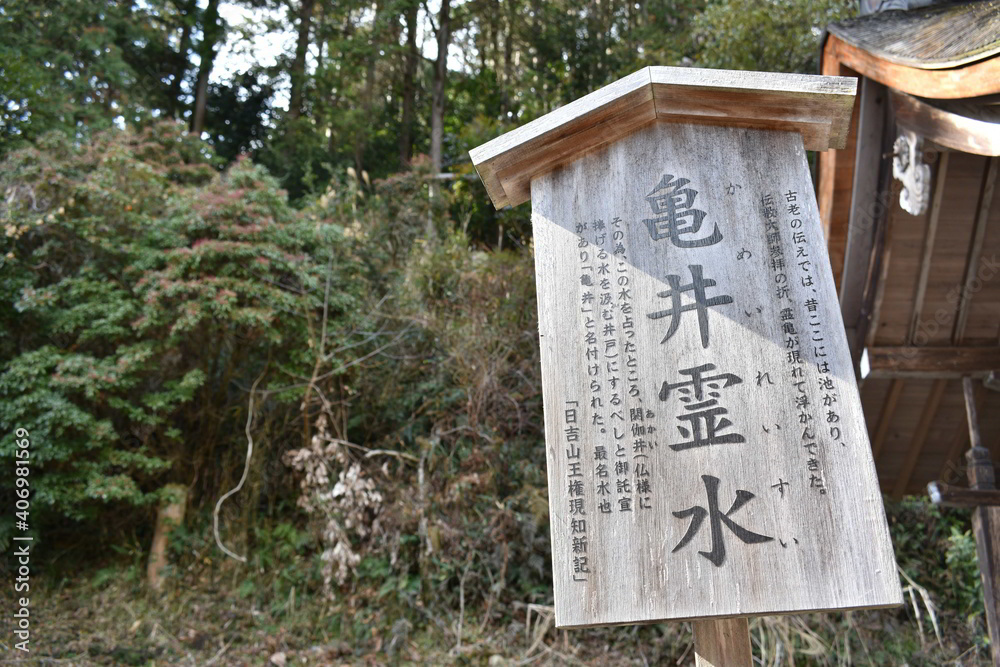 古老の伝えでは、昔ここには池があり、
伝教大師参拝の折、霊亀が現れて浮かんできた。
かめいれいすい
亀井霊水
その為、この水を占ったところ、閼伽井(仏様に
おかい
捧げる水を汲む井戸)にするべしと御託宣
があり「亀井」と名付けられた。最名水也
「日吉山王権現知新記」
Adobe Stock | #406981569